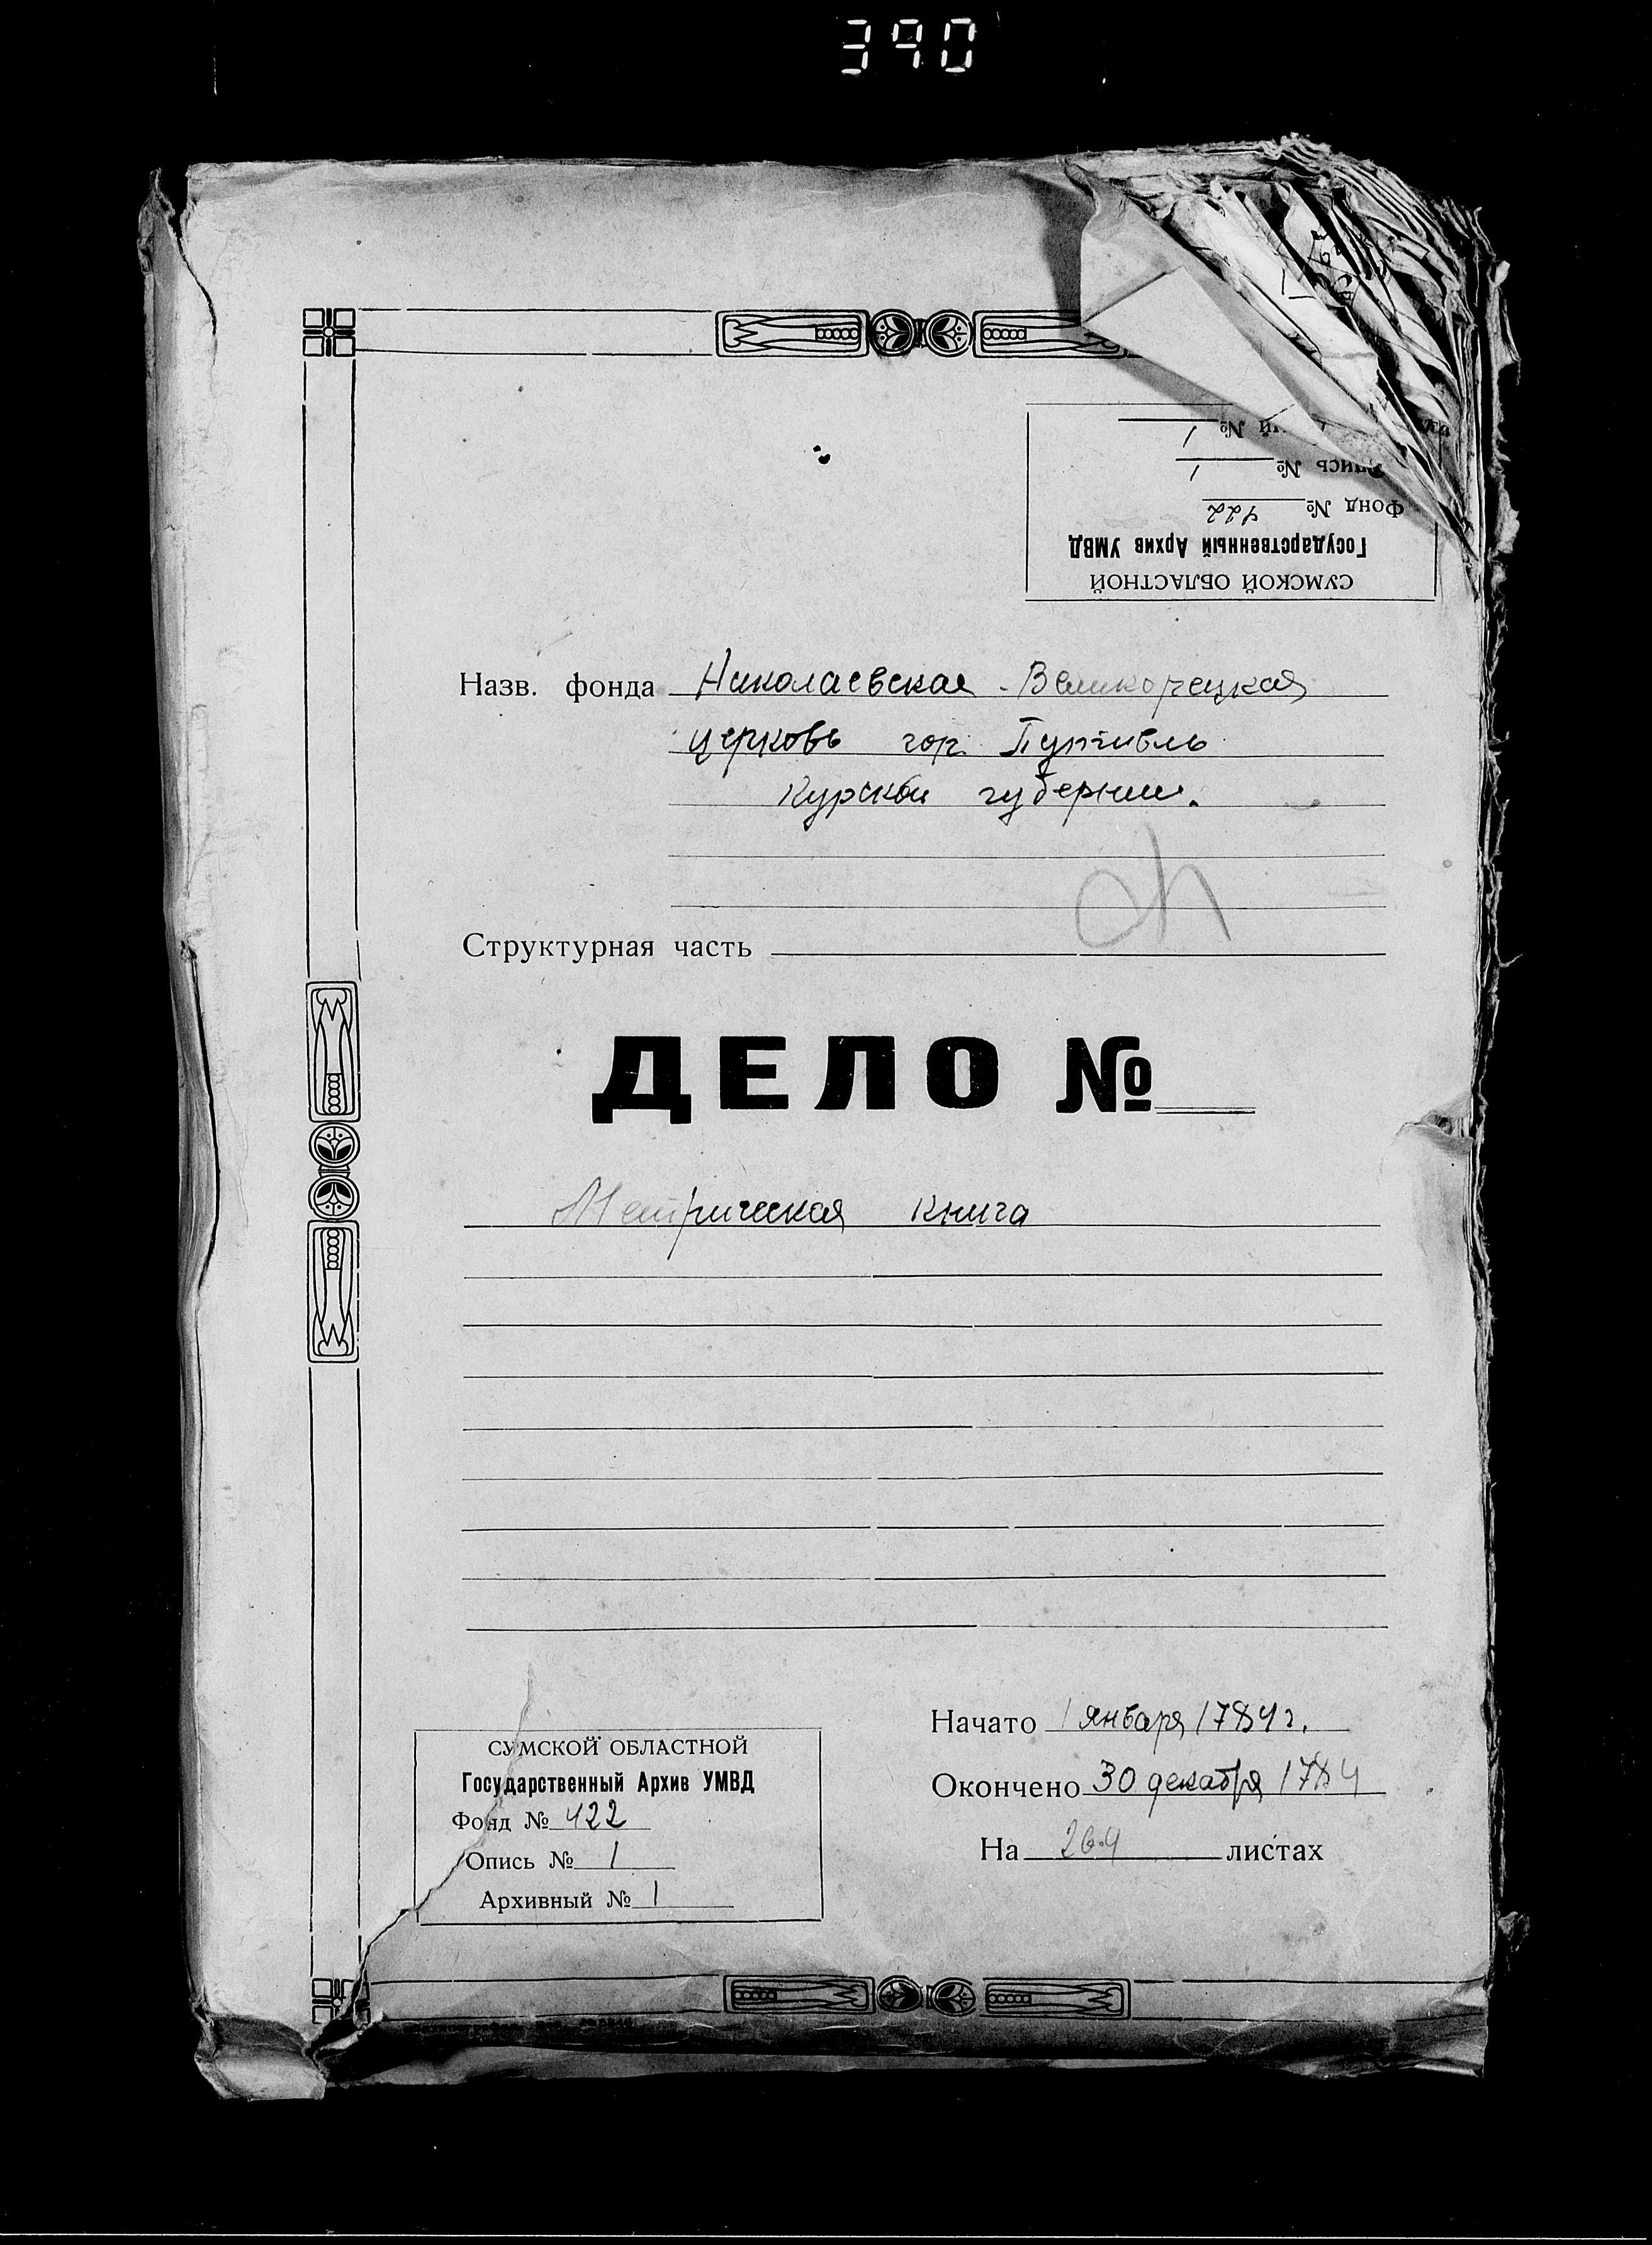 390
Архивный № 1
Опись № 1
Фонд № 422
Государственный Архив УМВД
СУМСКОЙ ОБЛАСТНОЙ
Назв. фонда Николаевская - Великорецкая
церковь гор. Путивль
Курской губернии.
Структурная часть
ДЕЛО №
Метрическая книга
Начато 1 января 1784 г.
Окончено 30 декабря 1784
На 264 листах
СУМСКОЙ ОБЛАСТНОЙ
Государственный Архив УМВД
Фонд № 422
Опись № 1
Архивный № 1